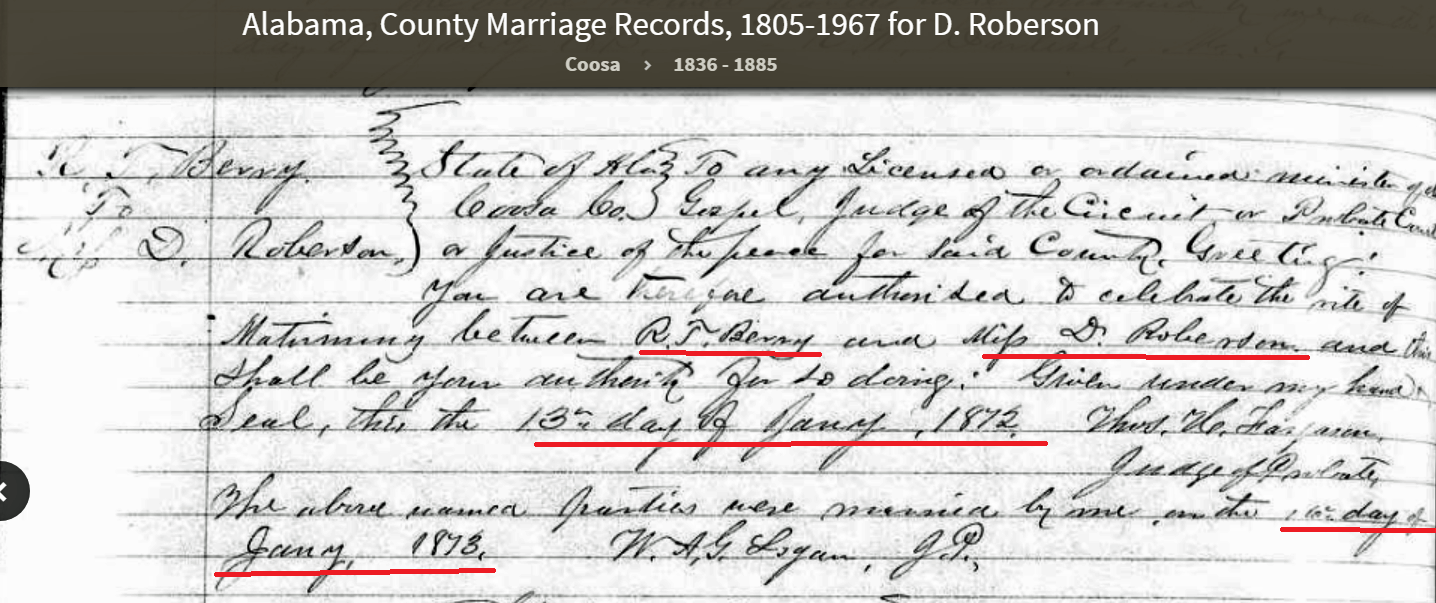 Alabama, County Marriage Records, 1805-1967 for D. Roberson
Coosa › 1836 - 1885
R. T. Berry State of Ala To any Licensed or ordained minister of
To Coosa Co. Gospel, Judge of the Circuit or Probate Court
Miss D. Roberson, or Justice of the peace for said County, Greeting!
You are therefore authorised to celebrate the rite of
Matrimony between R. T. Berry and Miss D. Roberson and this
Shall be your authority for so doing. Given under my hand
Seal, this the 13th day of Jany, 1873. Thos. U.
Judge of Probate,
The above named parties were married by me on the day of
Jany, 1873. W. A. G. Logan, J.P.,